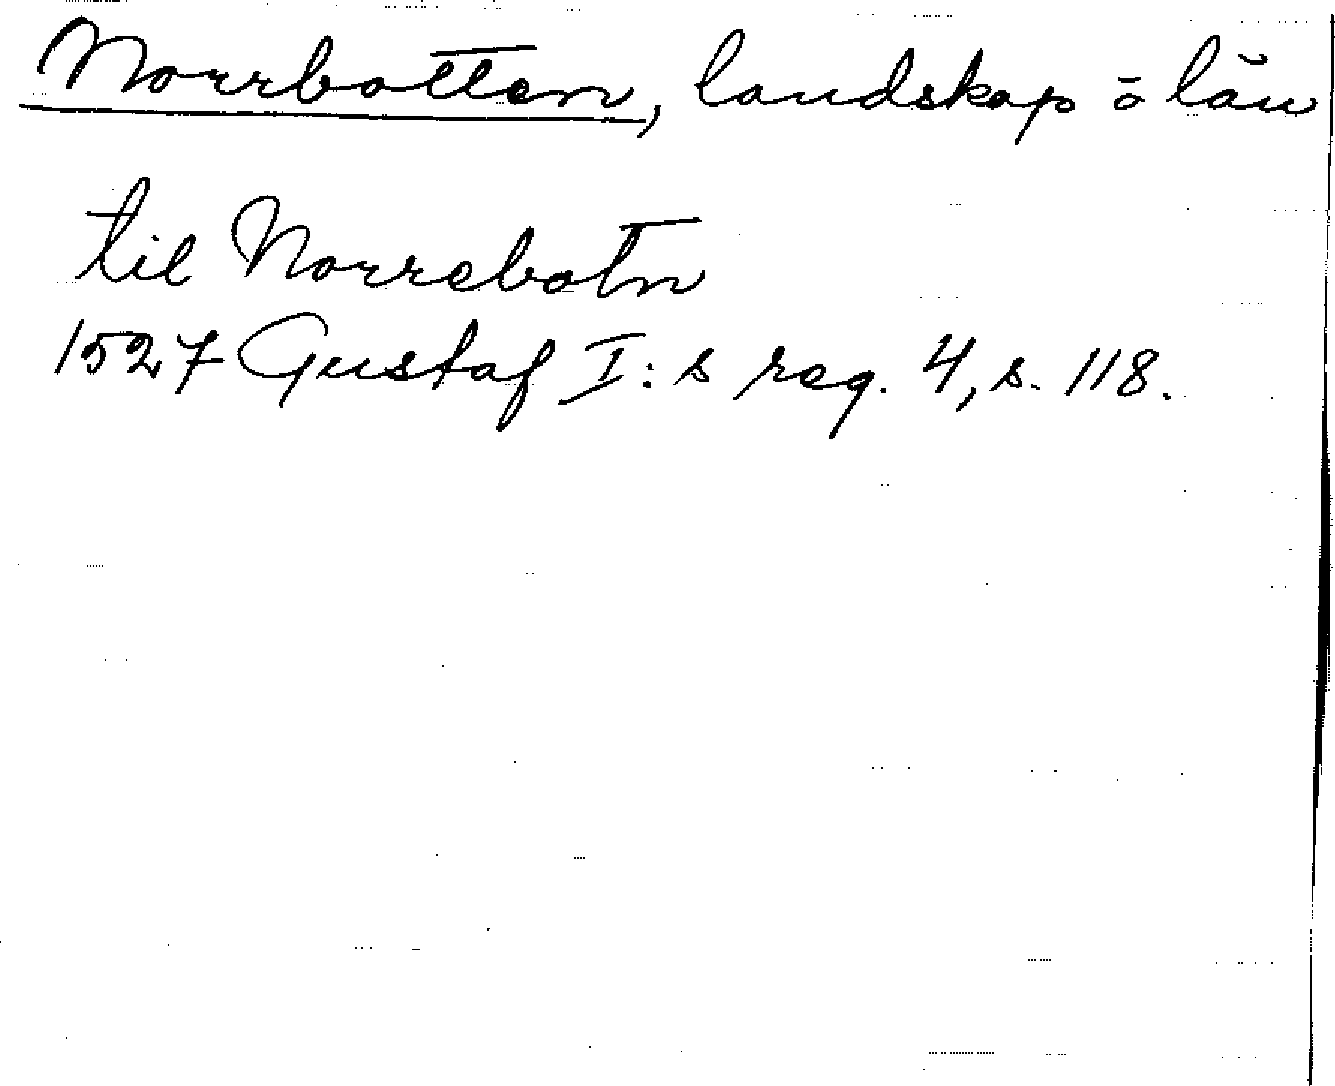 Norrbotten, landskap o län
til Norrebotn
1527 Gustaf I:s reg. 4, s. 118.